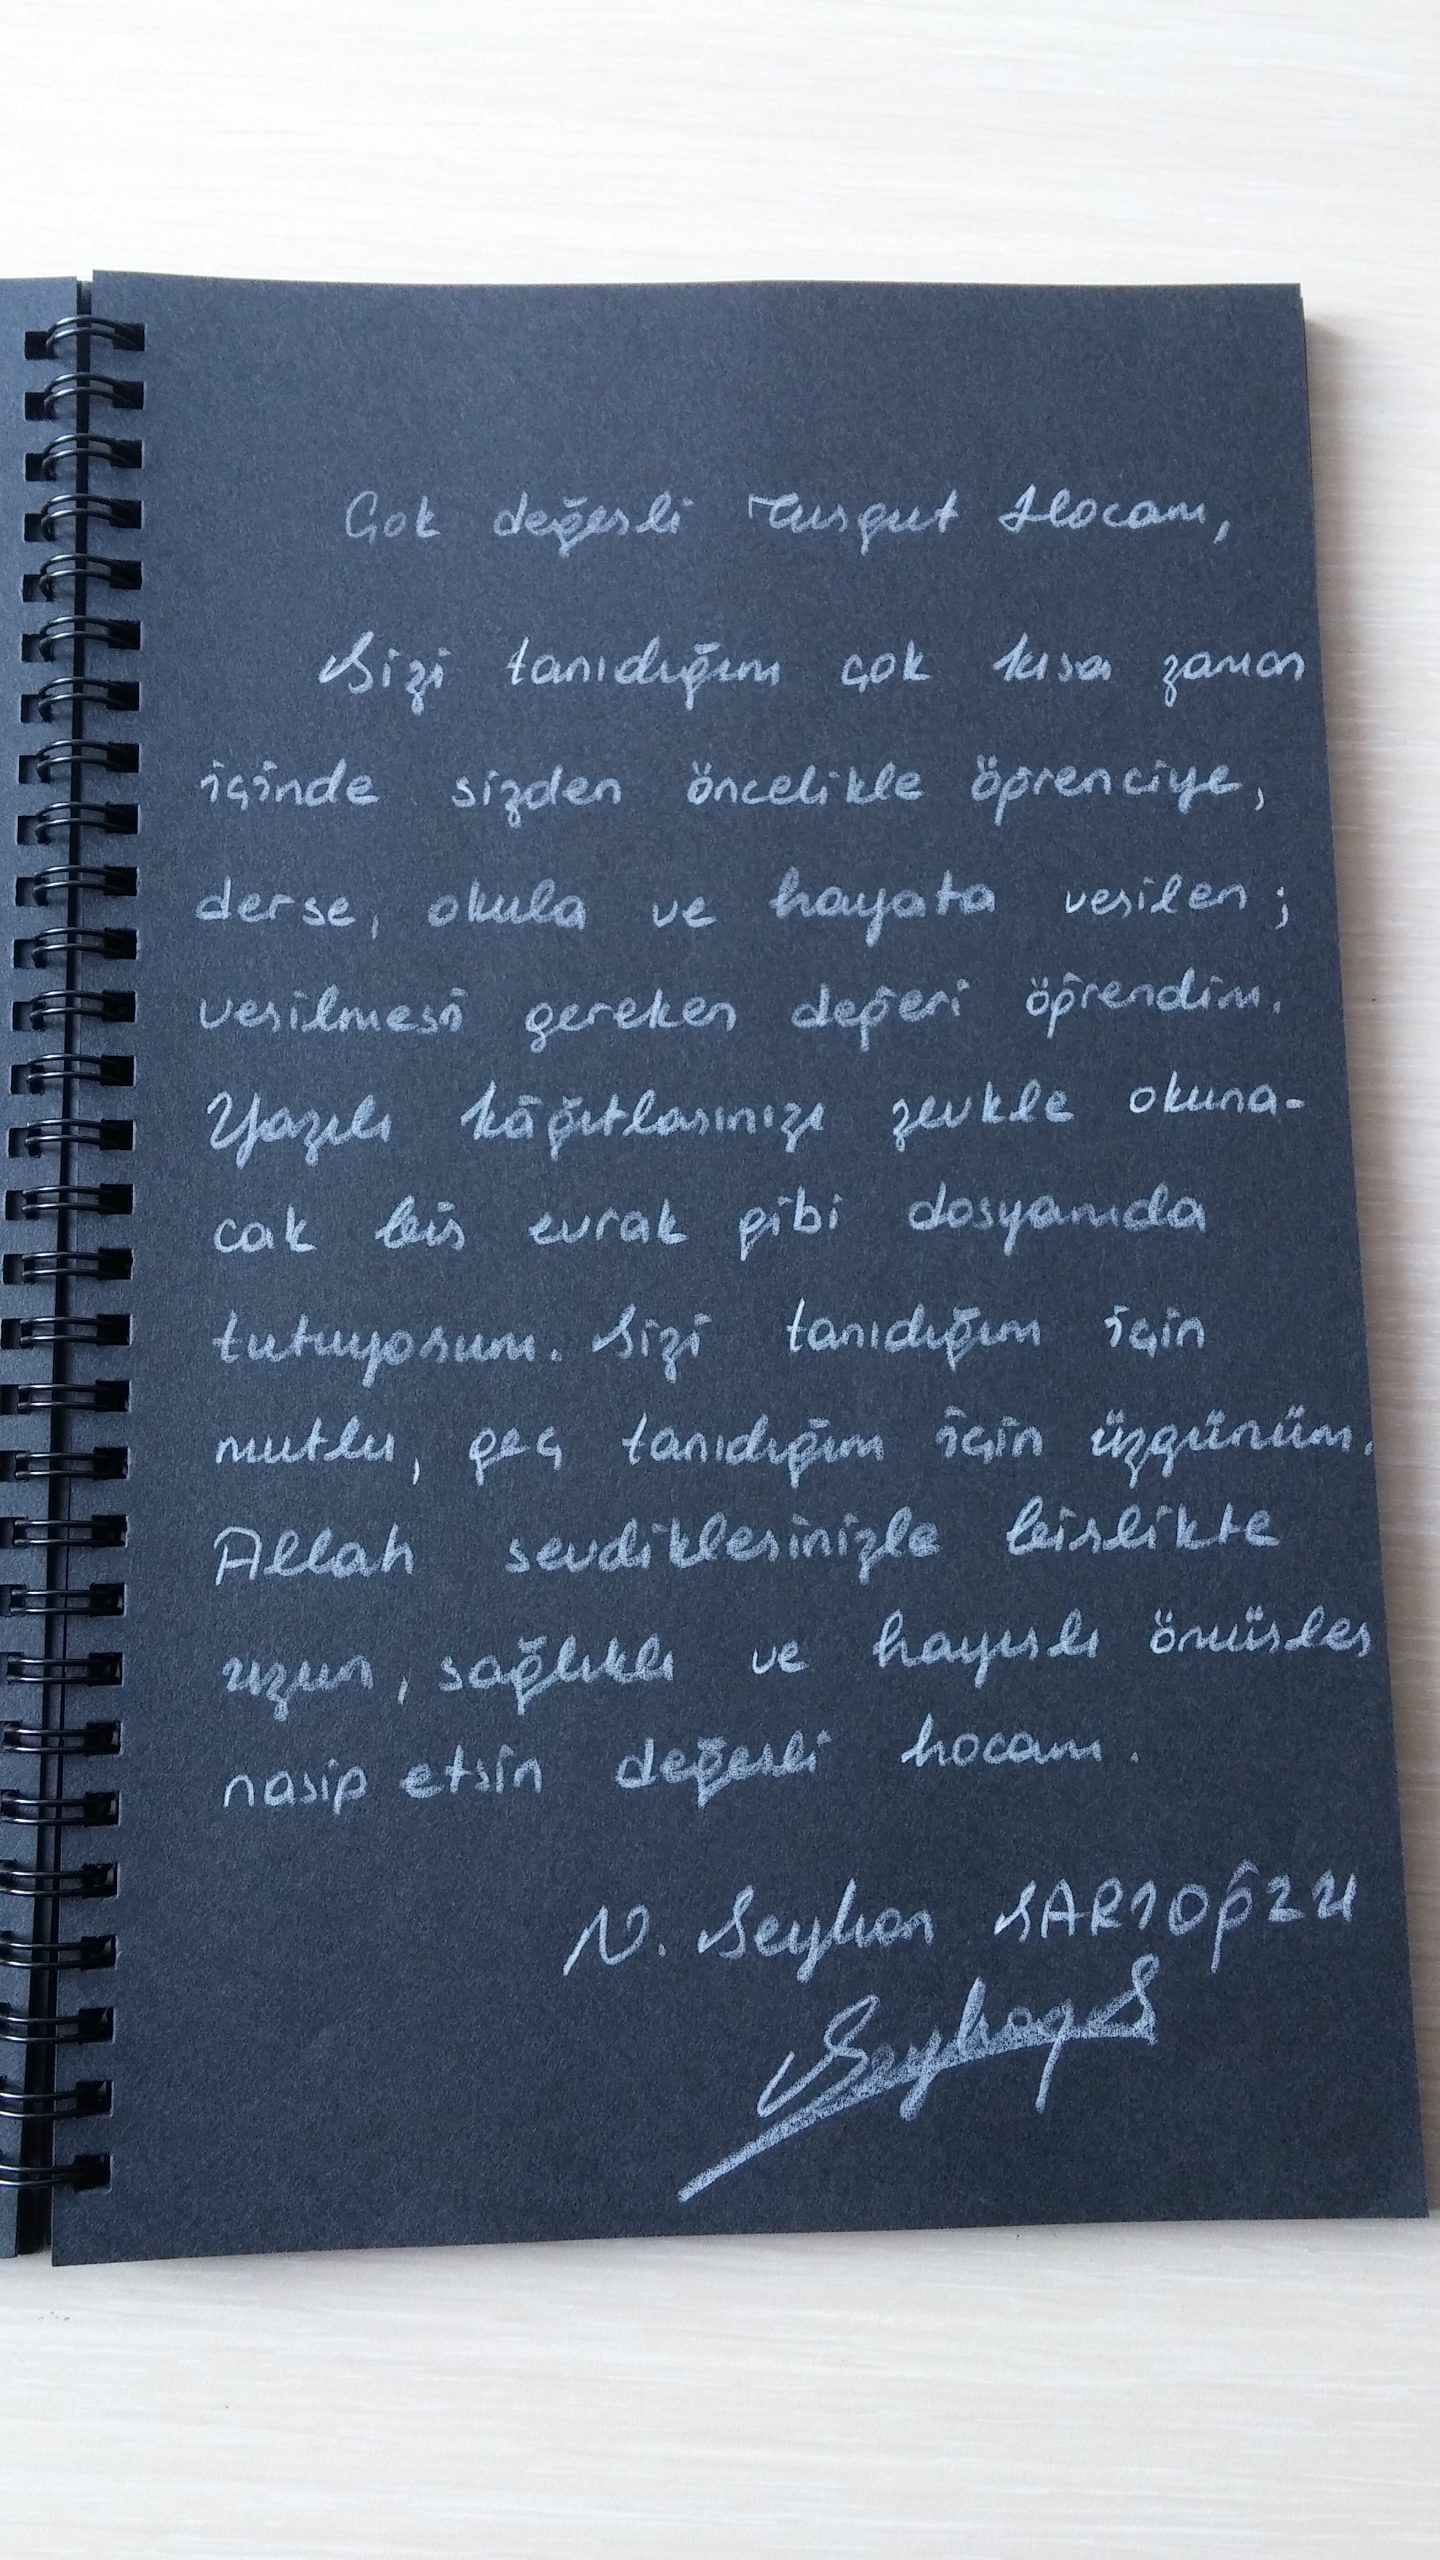 Çok değerli Turgut Hocam,
Sizi tanıdığım çok kısa zaman
içinde sizden öncelikle öğrenciye,
derse, okula ve hayata verilen;
verilmesi gereken değeri öğrendim.
Yazılı kâğıtlarınızı zevkle okuna-
cak bir evrak gibi dosyamda
tutuyorum. Sizi tanıdığım için
mutlu, geç tanıdığım için üzgünüm.
Allah sevdiklerinizle birlikte
uzun, sağlıklı ve hayırlı ömürler
nasip etsin değerli hocam.
N. Seyhan SARIOĞLU